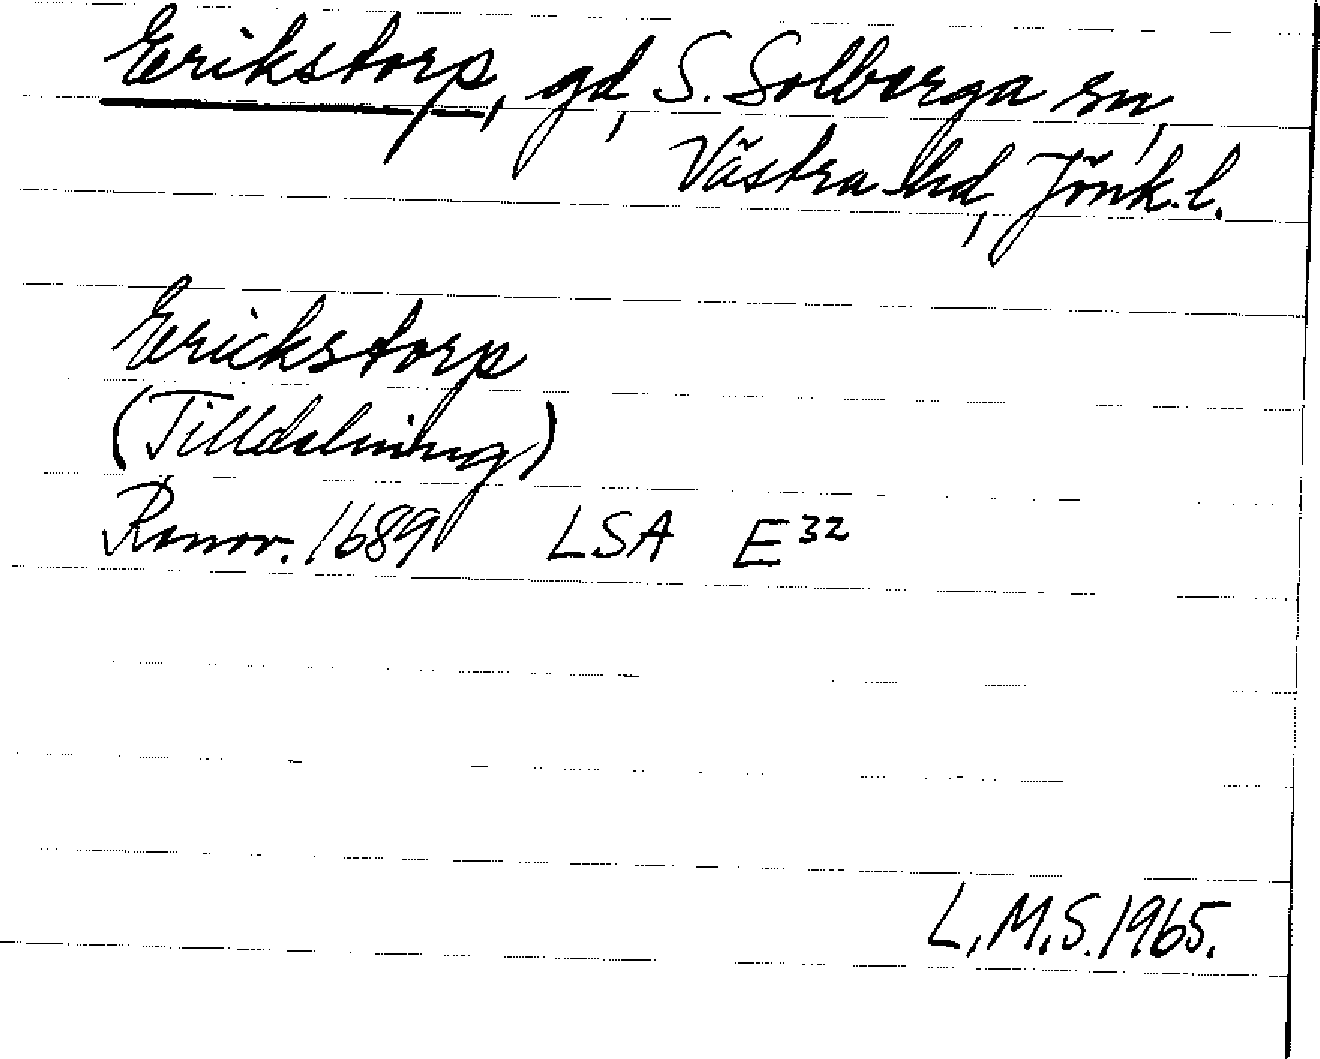 Erikstorp, gd, S. Solberga sn,
Västra hd, Jönk. l.
Erickstorp
(Tilldelning)
Renov. 1689 LSA E32
L.M.S. 1965.